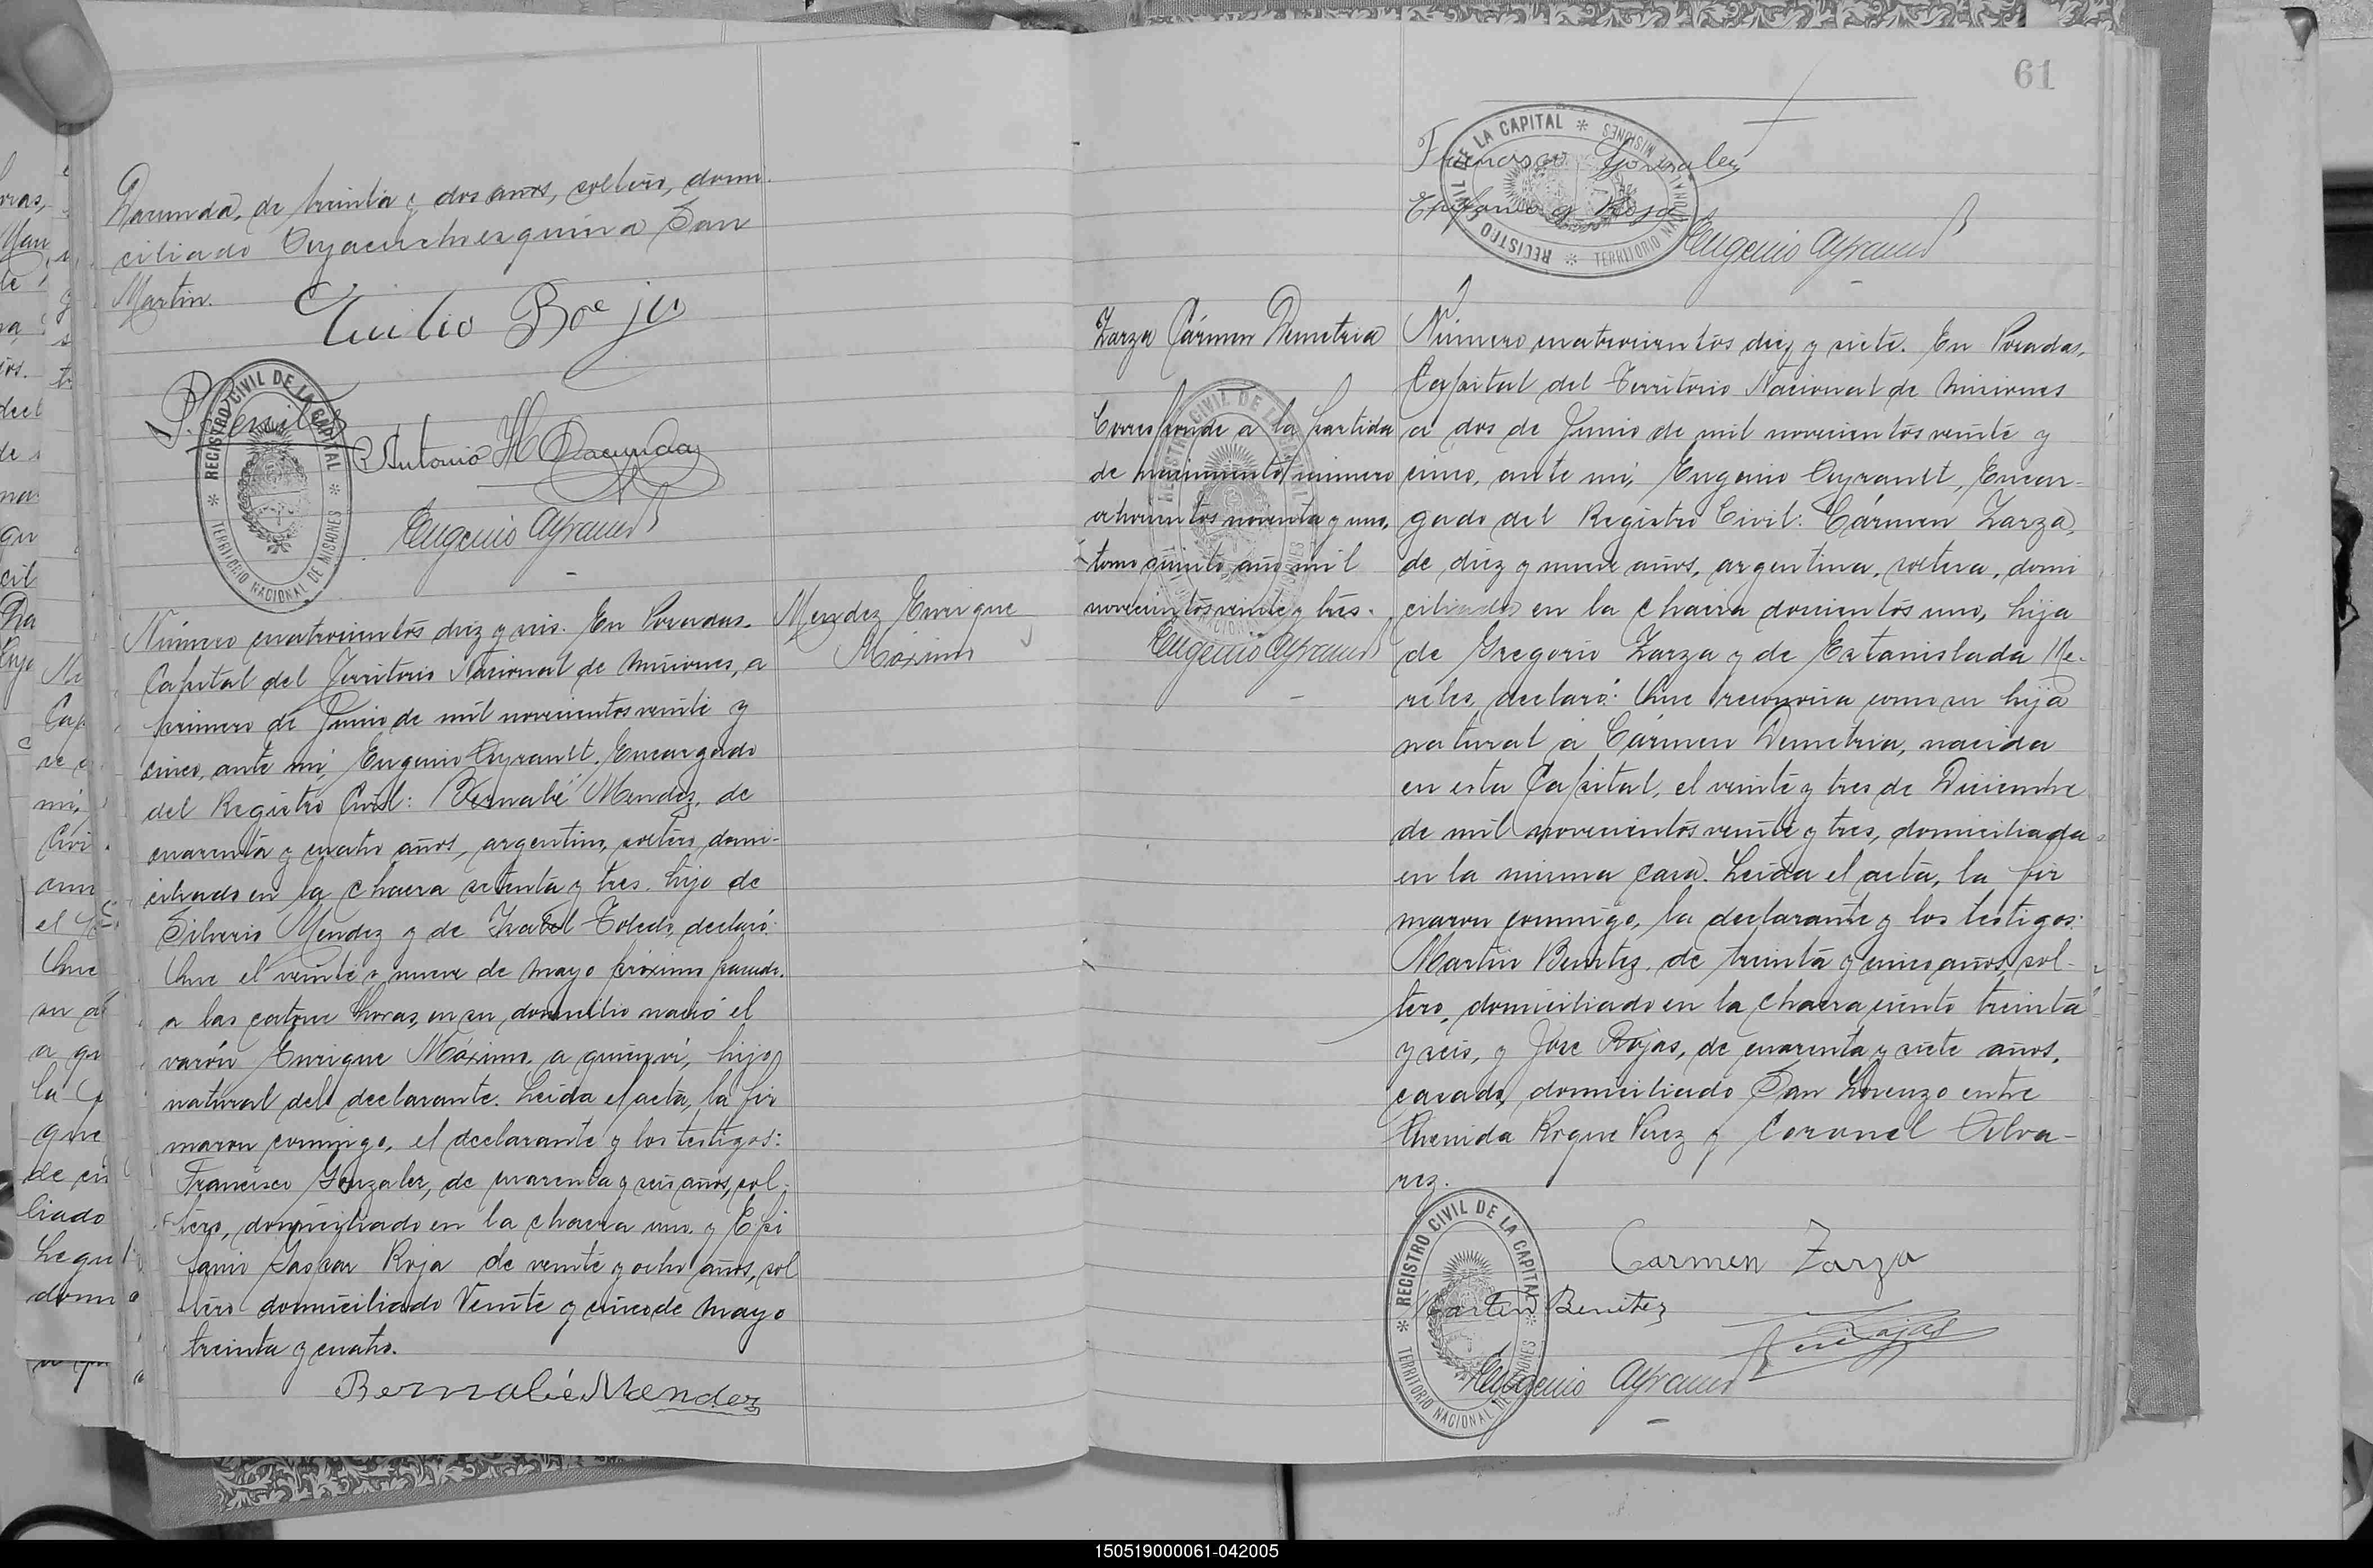 Dacunda, de treinta y dos años, soltero, domi-
ciliado Ayacucho esquina San
Martin.
REGISTRO CIVIL DE LA CAPITAL
TERRITORIO NACIONAL DE MISIONES
Antonio H Dacunda
Eugenio Ayrault
Número cuatrocientos diez y seis. En Posadas.
Capital del Territorio Nacional de Misiones, a
primero de Junio de mil novecientos veinte y
cinco, ante mi, Eugenio Ayrault. Encargado
del Registro Civil: Bernabé Mendez, de
cuarenta y cuatro años, argentino, soltero, domi-
ciliado en la chacra setenta y tres. hijo de
Silverio Mendez y de Isabel Toledo, declaró:
Que el veinte y nueve de Mayo próximo pasado.
a las catorce horas, en su domicilio nació el
varón Enrique Máximo, a quien ví, hijo
natural del declarante. Leida el acta, la fir
maron conmigo, el declarante y los testigos:
Francisco Gonzalez, de cuarenta y seis años, sol-
tero, domiciliado en la chacra uno y Epi
fanio Gaspar Roja de veinte y ocho años, sol
tero domiciliado Veinte y cinco de Mayo
treinta y cuatro.
Bernabé Mendez
Mendez Enrique
Máximo
61
REGISTRO CIVIL DE LA CAPITAL
TERRITORIO NACIONAL DE MISIONES
Francisco Gonzalez
Epifanio G Roja
Eugenio Ayrault
Zarza Cármen Demetria
Corresponde a la partida
de nacimiento número
ochocientos noventa y uno,
tomo quinto año mil
novecientos veinte y tres.
Eugenio Ayrault
Número cuatrocientos diez y siete. En Posadas,
Capital del Territorio Nacional de Misiones
a dos de Junio de mil novecientos veinte y
cinco, ante mi, Eugenio Ayrault, Encar-
gado del Registro Civil: Cármen Zarza,
de diez y nueve años, argentina, soltera, domi
ciliada en la chacra doscientos uno, hija
de Gregorio Zarza y de Estanislada Me-
reles, declaró: Que reconocia como su hija
natural a Cármen Demetria, nacida
en esta Capital, el veinte y tres de Diciembre
de mil novecientos veinte y tres, domiciliada
en la misma casa. Leida el acta, la fir
maron conmigo, la declarante y los testigos:
Martin Benitez, de treinta y cinco años, sol-
tero, domiciliado en la chacra ciento treinta
y seis, y José Rojas, de cuarenta y siete años,
casado, domiciliado San Lorenzo entre
Avenida Roque Perez y Coronel Alva-
rez.
REGISTRO CIVIL DE LA CAPITAL
TERRITORIO NACIONAL DE MISIONES
Carmen Zarza
Martin Benitez
Rojas
Eugenio Ayrault
150519000061-042005